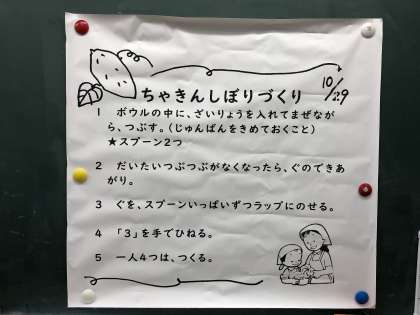 ちゃきんしぼりづくり 10/29
1 ボウルの中に、ざいりょうを入れてまぜなが
ら、つぶす。(じゅんばんをきめておくこと)
★スプーン2つ
2 だいたいつぶつぶがなくなったら、ぐのできあ
がり。
3 ぐを、スプーンいっぱいずつラップにのせる。
4 「3」を手でひねる。
5 一人4つは、つくる。